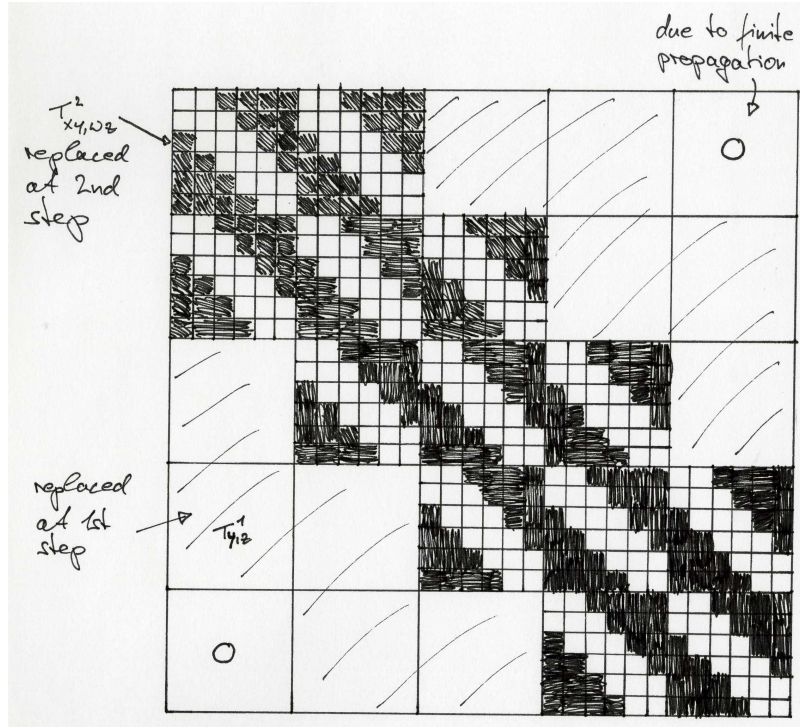 due to finite
propagation
T²xy,wz
replaced
at 2nd
step
O
replaced
at 1st
step
T¹y,z
O